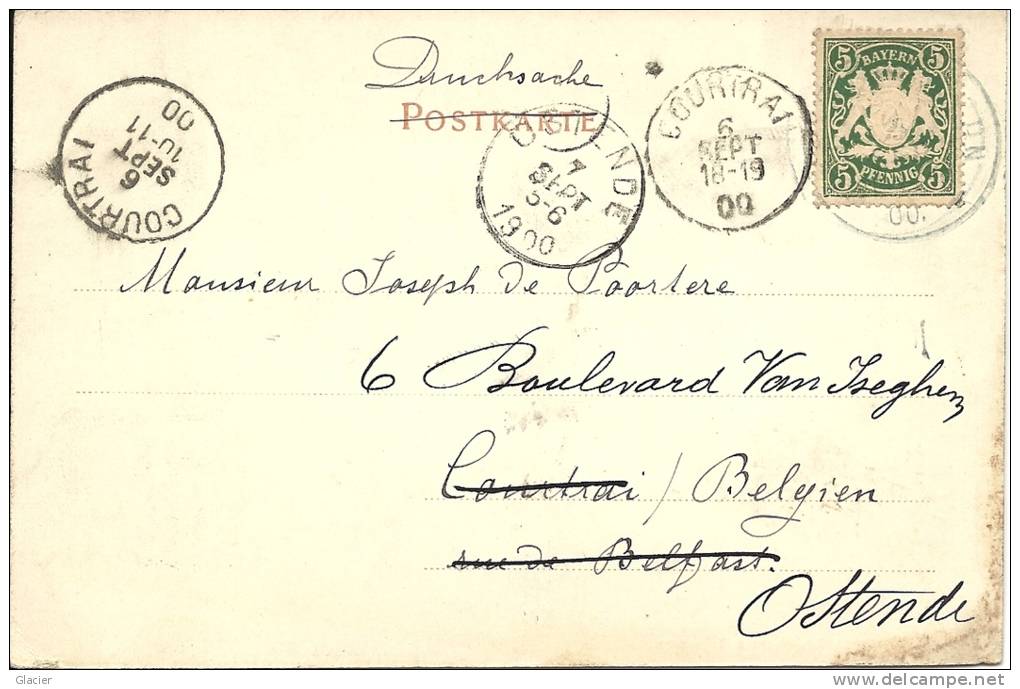 Drucksache
POSTKARTE
COURTRAI
6
SEPT
10-11
00
OSTENDE
7
SEPT
5-6
1900
COURTRAI
6
SEPT
18-19
00
5 5
BAYERN
PFENNIG
5 5
00.
Monsieur Joseph de Poortere
6 Boulevard Van Iseghem
Courtrai / Belgien
rue de Belfast.
Ostende
Glacier
delcampe.net